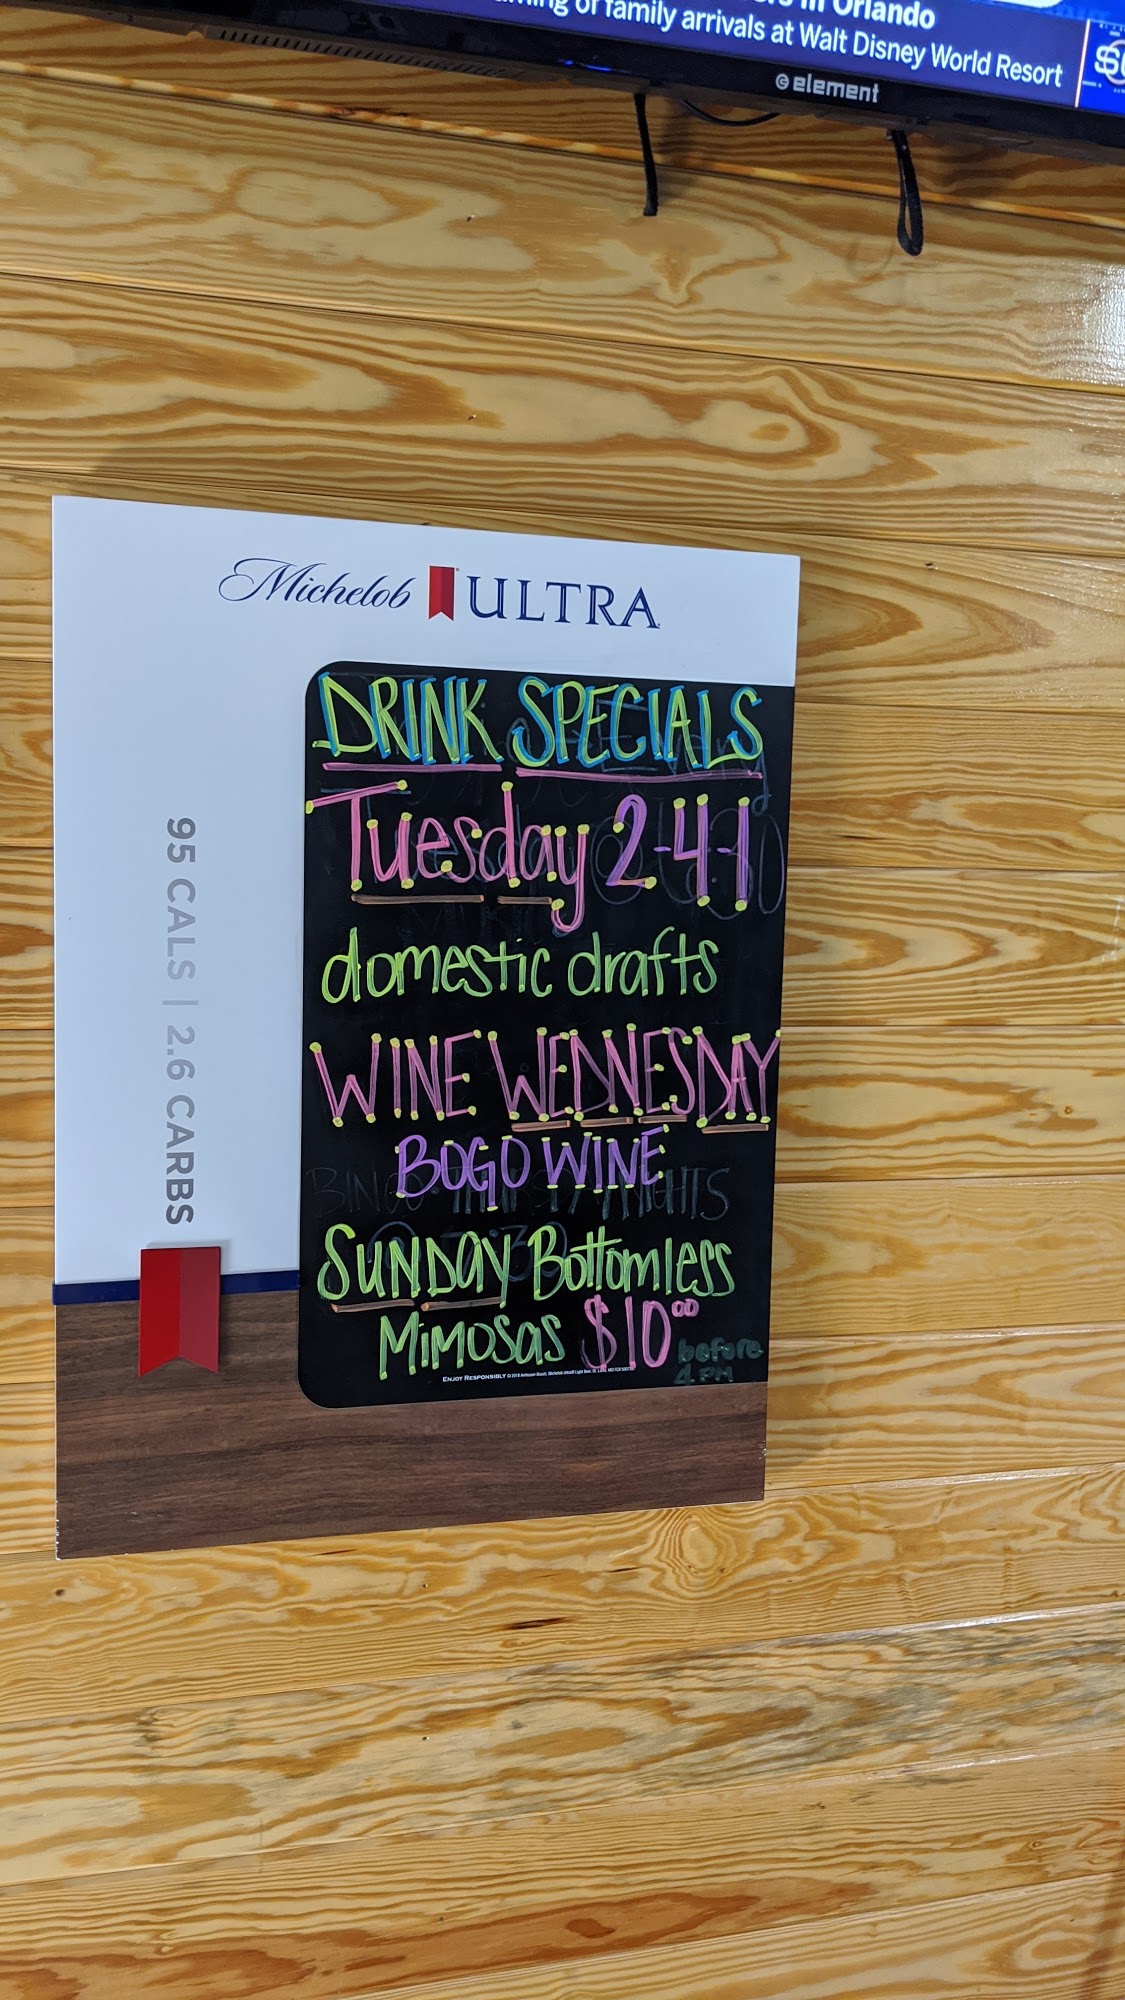 in Orlando
of family arrivals at Walt Disney World Resort
element
Michelob ULTRA
95 CALS | 2.6 CARBS
DRINK SPECIALS
Tuesday 2-4-1
domestic drafts
WINE WEDNESDAY
BOGO WINE
SUNDAY Bottomless
Mimosas $10.00
before
4 PM
ENJOY RESPONSIBLY